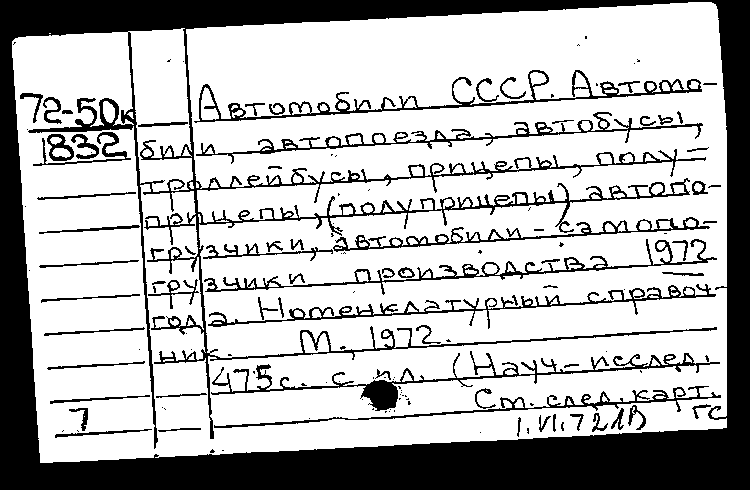 72-50к
1832
Автомобили СССР. Автомо-
били, автопоезда, автобусы,
троллейбусы, прицепы, полу=
прицепы, (полуприцепы) автопо-
грузчики, автомобили-самопо-
грузчики производства 1972
года. Номенклатурный справоч-
ник. М., 1972.
475с. с ил. (Науч.-исслед.
См. след. карт.
7
1.VI.72 1В ГС